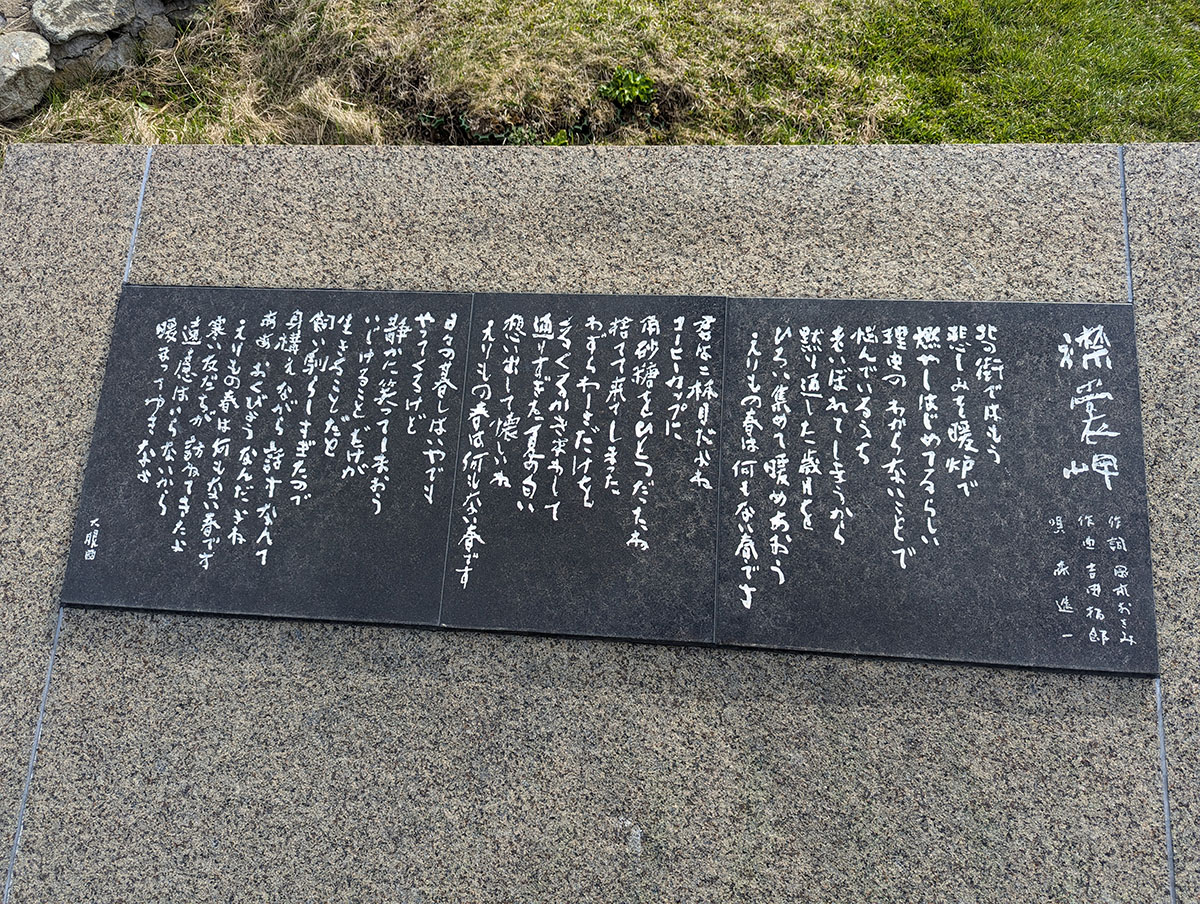 襟裳岬
作詞 岡本おさみ
作曲 吉田拓郎
唄 森進一
北の街ではもう
悲しみを暖炉で
燃やしはじめてるらしい
理由のわからないことで
悩んでいるうち
老いぼれてしまうから
黙り通した歳月を
ひろい集めて暖めあおう
えりもの春は何もない春です
君は二杯目だよね
コーヒーカップに
角砂糖をひとつだったね
捨てて来てしまった
わずらわしさだけを
くるくるかきまわして
通りすぎた夏の匂い
想い出して懐しいね
えりもの春は何もない春です
日々の暮しはいやでも
やってくるけど
静かに笑ってしまおう
いじけることだけが
生きることだと
飼い馴らしすぎたので
身構えながら 話すなんて
ああ おくびょう なんだよね
えりもの春は何もない春です
寒い友だちが 訪ねてきたよ
遠慮はいらないから
暖まってゆきなよ